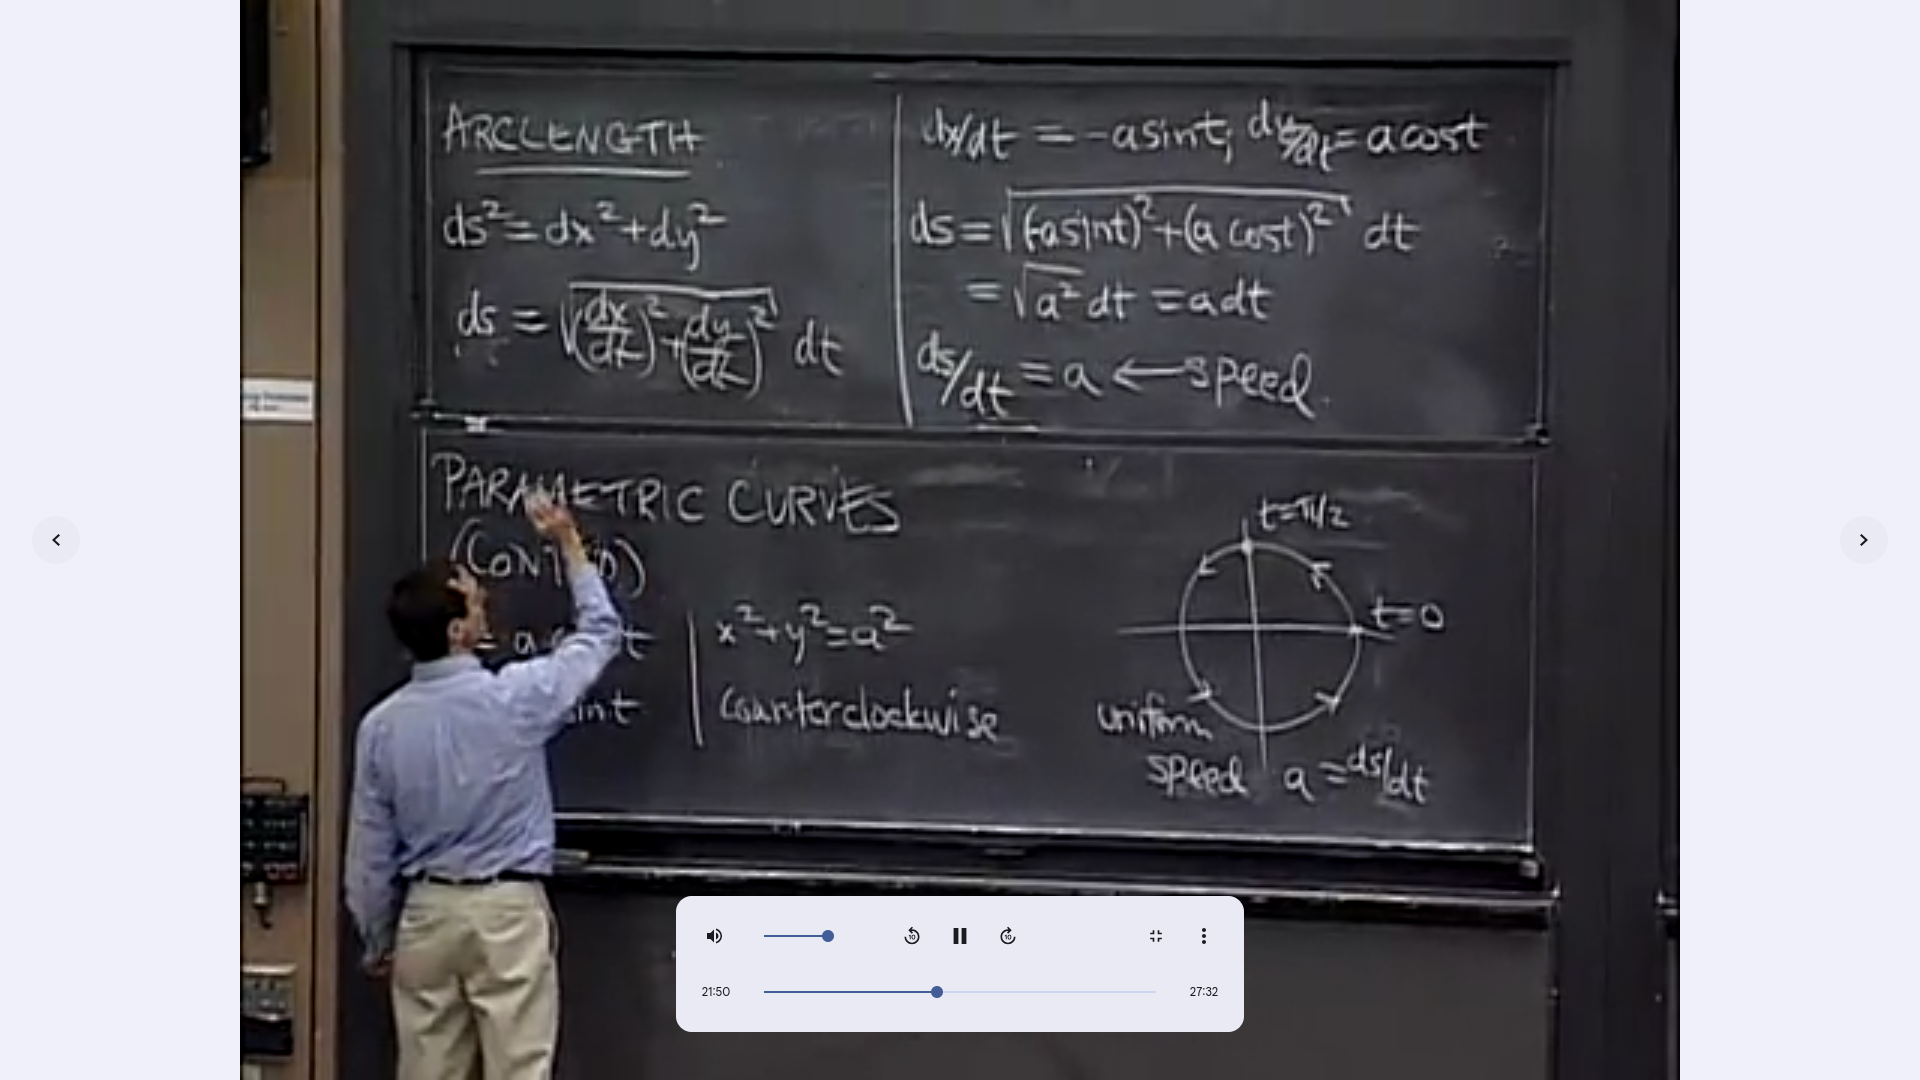 ARCLENGTH
ds² = dx² + dy²
ds = √((dx/dt)² + (dy/dt)²) dt
dx/dt = -a sint; dy/dt = a cost
ds = √((-a sint)² + (a cost)²) dt
= √a² dt = a dt
ds/dt = a ← speed
PARAMETRIC CURVES
(CONT'D)
= a t
int
x² + y² = a²
Counterclockwise
t=π/2
t=0
uniform
speed a = ds/dt
21:50
27:32